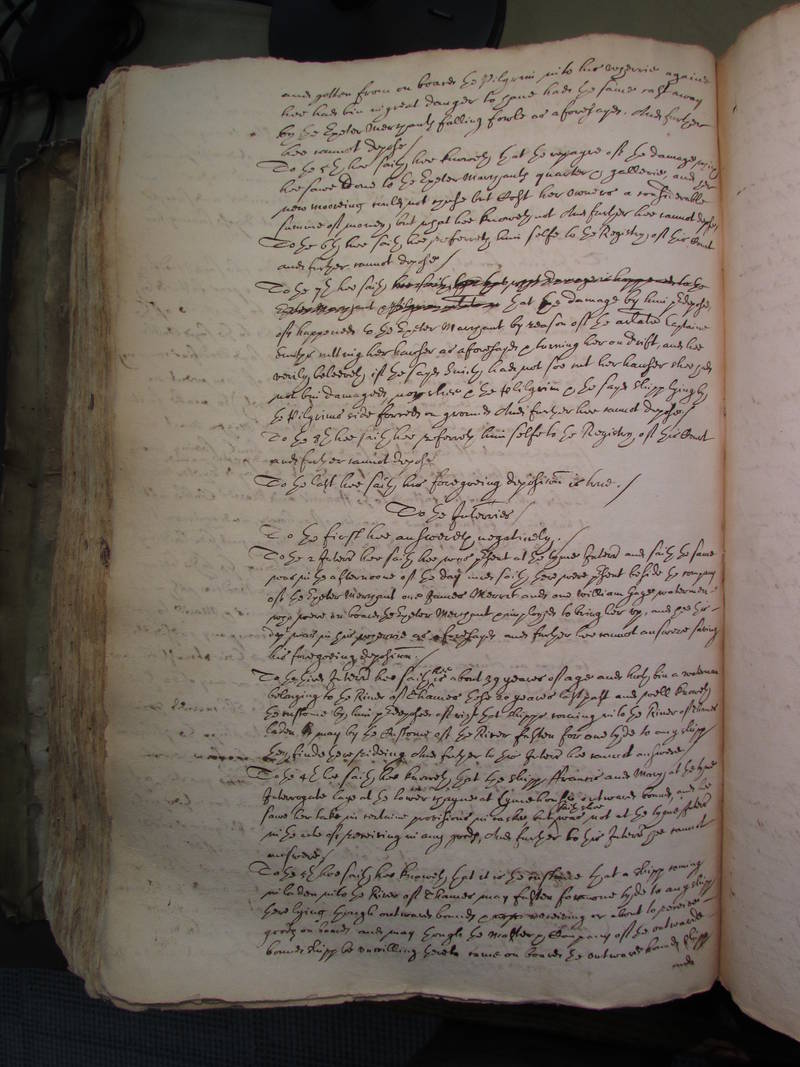 and gotten from on board the Pilgrim into his wherrie againe
hee had bin in great danger to have had the same cast away
by the Exeter Merchants falling fowle as aforesayd. And further
hee cannot depose /
To the 5th hee saith hee knoweth that the repayre of the damage
hee sawe done to the Exeter Merchants quarter and gallerie, and her
new mooring could not chose but Cost her owners a considerable
summe of money, but what hee knoweth not And further hee cannot depose
To the 6th hee saith hee referreth him selfe to the Registry of this Court
and further cannot depose /
To the 7th hee saith
that the damage by him predeposed
of happened to the Exeter Merchant by reason of the arlate Captaine
Smiths cutting her hauser as aforesayd and turning her on drift, and hee
verily beleeveth if the sayd Smith had not soe cut her hauser shee had
not bin damaged, nor the Pilgrim the sayd shipp lying by
the Pilgrims side fast on ground And further hee cannot depose /
To the 8th hee saith hee referreth him selfe to the Registry of this Court
and further cannot depose
To the last hee saith his foregoeing deposition is true. /
To the Interries /
To the first hee answereth negatively. /
To the 2 Interr hee saith hee was present at the tyme Interr and saith the same
was in the afternoone of the day and saith there were present beside the company
of the Exeter Merchant one James Merrit and one William Gage watermen
who were on board the Exeter Merchant imployed to bring her up, and
was in his wherrie as aforesayd and further hee cannot answere saving
his foregoeing deposition /
To the third Interr hee saith hee is about 39 yeares of age and hath bin a waterman
belonging to the River of Thames these 20 yeares last past and well knoweth
the custome by him predeposed of vizt that shipps coming into the River of Thames
laden may by the Custome of the River fasten for one tyde to any shipp
they finde there rideing And further to this Interr hee cannot answere
To the 4th hee saith hee knoweth that the shipp Francis and Mary at the tyme
Interrogate lay at the lower at Lymehouse outwards bound, and hee
sawe her take in certaine provisions in but saith shee was not at the tyme Interr
in the act of receiving in any goods, And further to this Interr hee cannot
answere /
To the 5th hee saith hee knoweth that it is the custome that a shipp coming
in laden into the River of Thames may fasten for one tyde to any shipp
there lying though outwards bound receiving or about to receive
goods on board and may though the Master and Company of the outwards
bound shipp be unwilling thereto come on board the outwards bound shipp
and